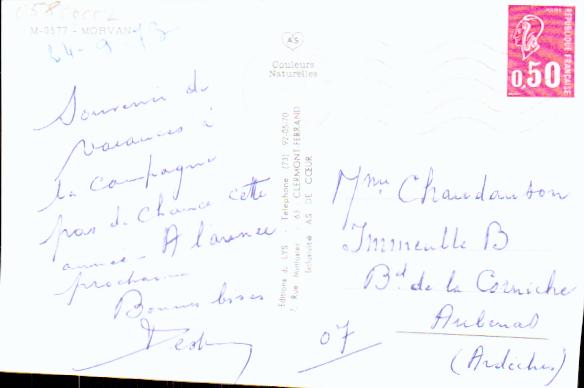 M-0577 - MORVAN
24-9-73
Souvenir de
vacances à
la campagne
pas de chance cette
année - A l'année
prochaine
Bonnes bises
AS
Couleurs
Naturelles
Editions du LYS - Téléphone (73) 92-05-70
7, Rue - 63 CLERMONT-FERRAND
Exclusivité AS DE CŒUR
REPUBLIQUE FRANÇAISE
0,50
Mme Chaudanson
Immeuble B
Bd de la Corniche
Aubenas
07
(Ardèche)